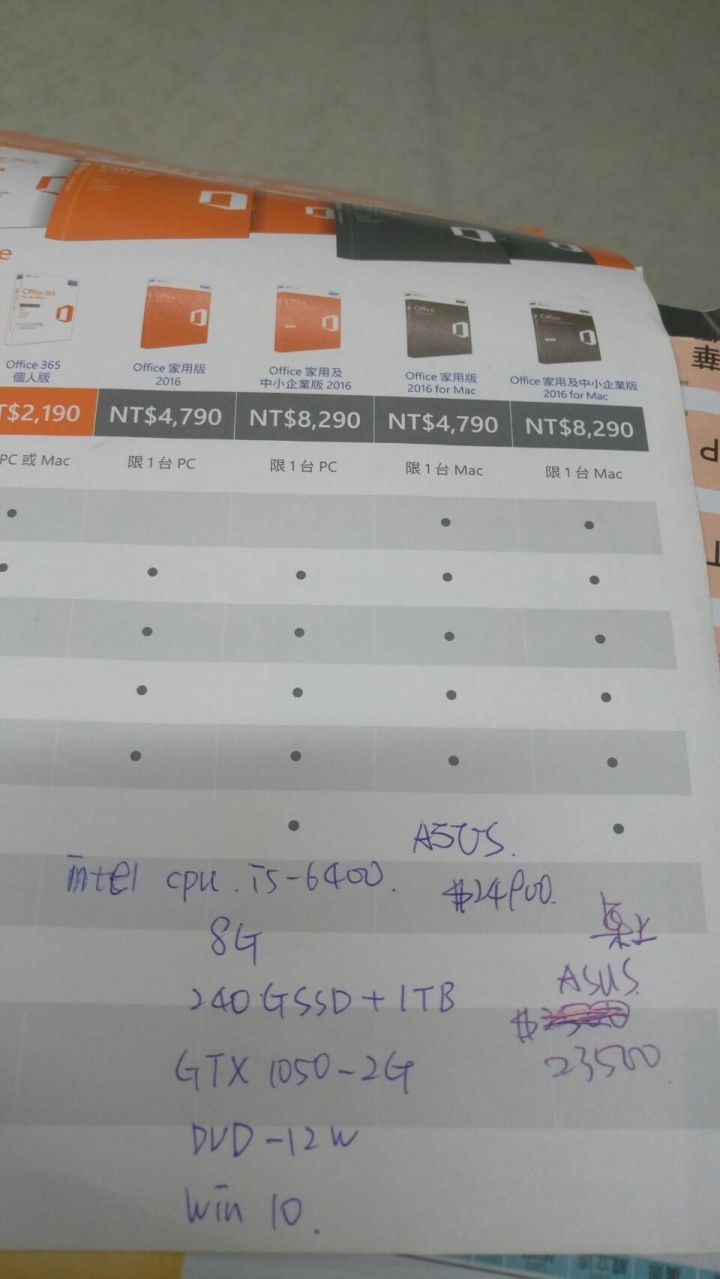 Office 365
個人版
Office 家用版
2016
Office 家用及
中小企業版 2016
Office 家用版
2016 for Mac
Office 家用及中小企業版
2016 for Mac
T$2,190
NT$4,790
NT$8,290
NT$4,790
NT$8,290
PC 或 Mac
限 1 台 PC
限 1 台 PC
限 1 台 Mac
限 1 台 Mac
ASUS.
intel cpu. i5-6400.
$24900.
8G
ASUS
240GSSD+1TB
$
GTX 1050-2G
23500
DVD-12W
Win 10.